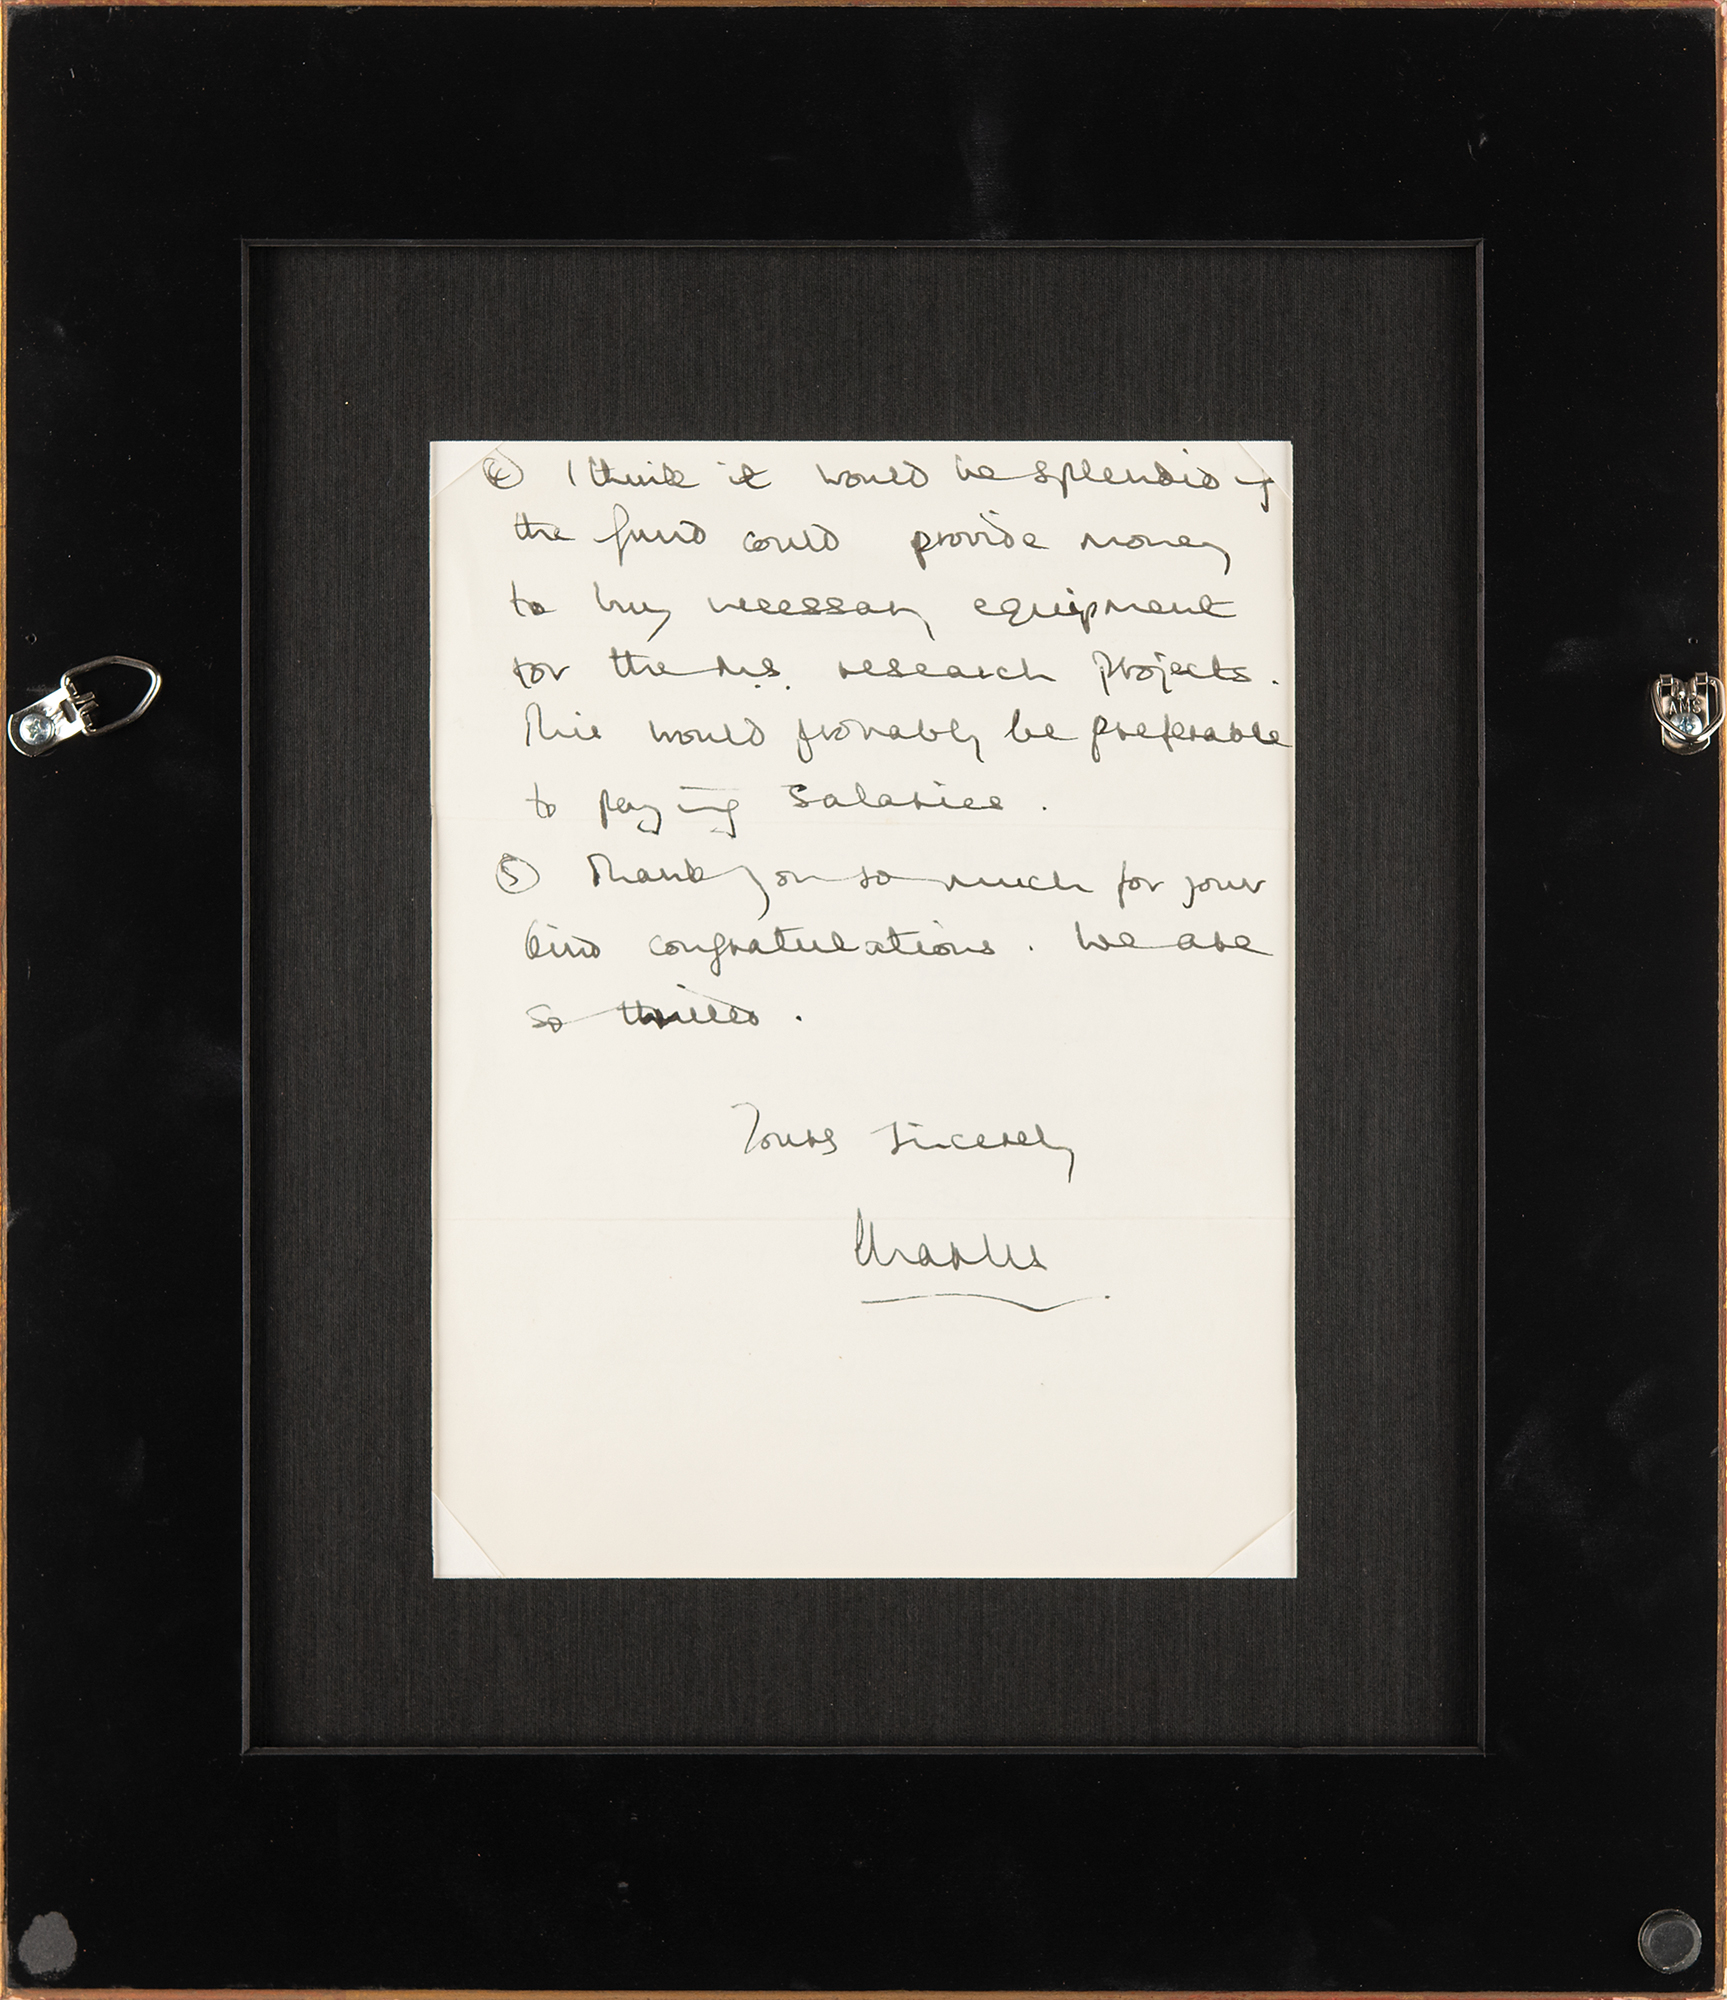 ④ I think it would be splendid if
the fund could provide money
to buy necessary equipment
for the M.S. research projects.
This would probably be preferable
to paying salaries.
⑤ Thank you so much for your
kind congratulations. We are
so thrilled.
Yours sincerely
Charles
AMS